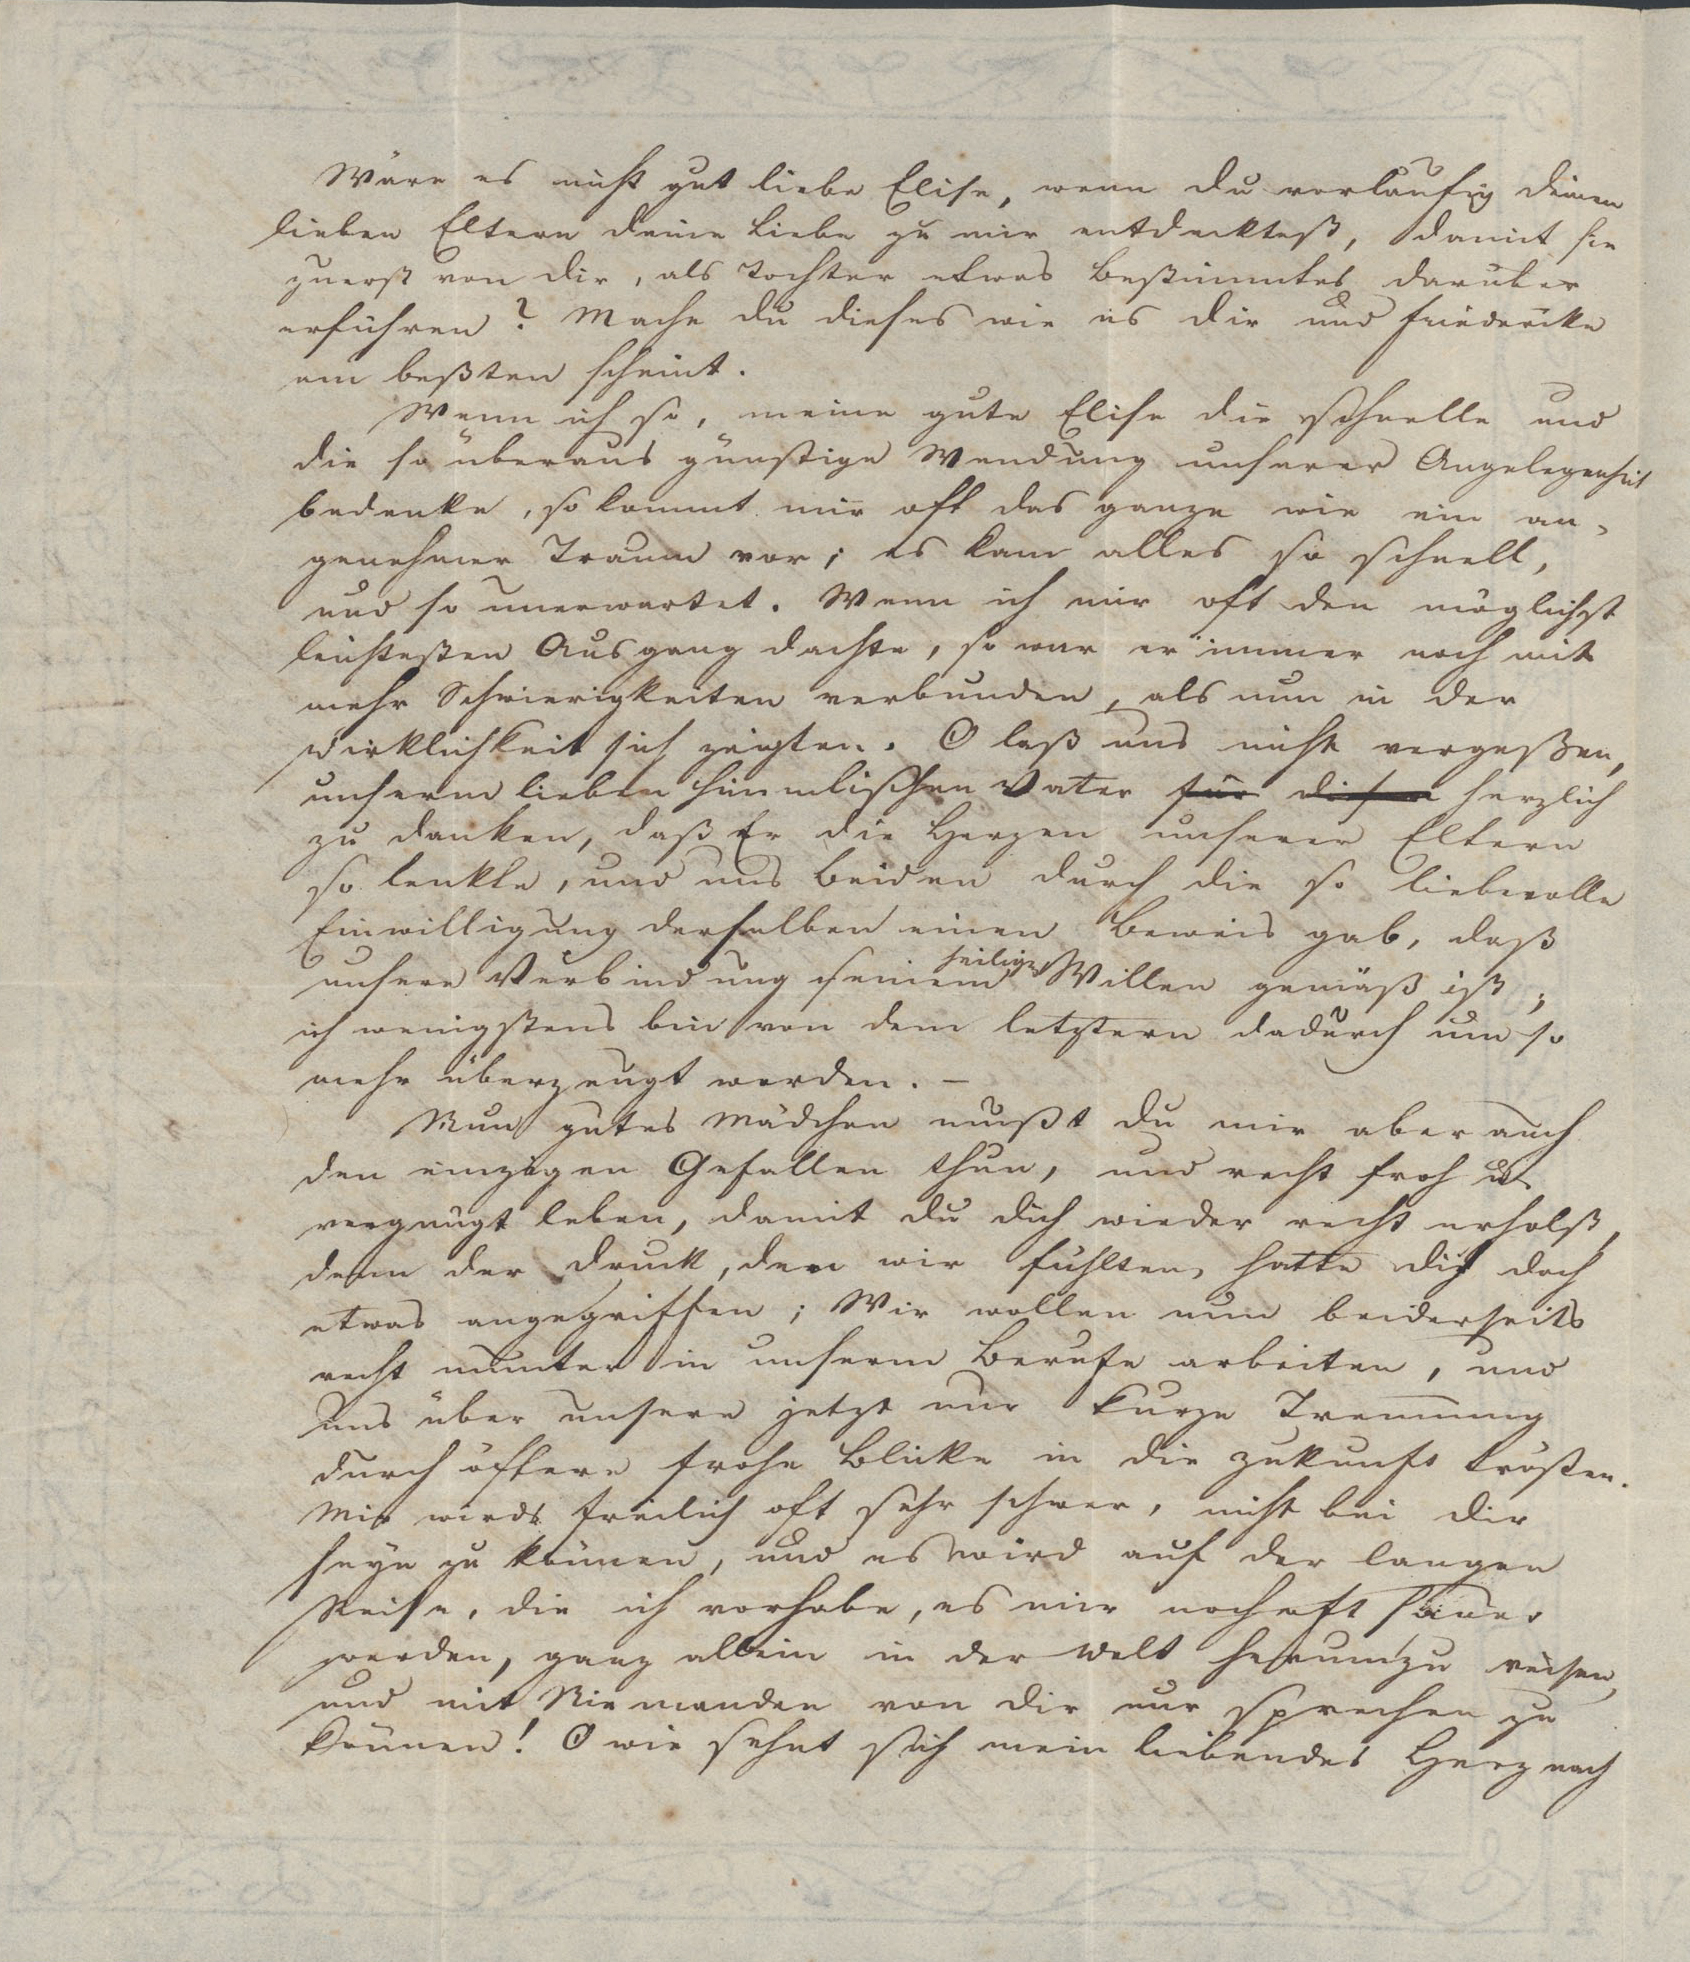 Wäre es nicht gut liebe Elise, wenn du vorläufig deinen
lieben Eltern deine Liebe zu mir entdecktest, damit sie
zuerst von dir, als Tochter etwas bestimmtes darüber
erführen? Mache du dieses wie es dir und Friedericke
am beßten scheint.
Wenn ich so, meine gute Elise die schnelle und
die so überaus günstige Wendung unserer Angelegenheit
bedenke, so kommt mir oft das ganze wie ein an-
genehmer Traum vor; es kam alles so schnell,
und so unerwartet. Wenn ich mir oft den möglichst
leichtesten Ausgang dachte, so war er immer noch mit
mehr Schwierigkeiten verbunden, als nun in der
Wirklichkeit sich zeigten. O laß uns nicht vergeßen,
unserm lieben himmlischen Vater für diesen herzlich
zu danken, daß Er die Herzen unserer Eltern
so lenkte, und uns beiden durch die so liebevolle
Einwilligung derselben einen Beweis gab, daß
unsere Verbindung seinem heiligen Willen gemäß ist;
ich wenigstens bin von dem letztern dadurch um so
mehr überzeugt worden. –
Nun gutes Mädchen mußt du mir aber auch
den einzigen Gefallen thun, und recht froh u.
vergnügt leben, damit du dich wieder recht erholst,
denn der Druck, den wir fühlten, hatte dich doch
etwas angegriffen; Wir wollen nun beiderseits
recht munter in unserm Berufe arbeiten, und
uns über unsere jetzt nur kurze Trennung
durch öftere frohe Blicke in die Zukunft trösten.
Mir wirds freilich oft sehr schwer, nicht bei dir
seyn zu können, und es wird auf der langen
Reise, die ich vorhabe, es mir noch oft sauer
werden, ganz allein in der Welt herumzureisen,
und mit Niemanden von dir nur sprechen zu
können! O wie sehnt sich mein liebendes Herz nach